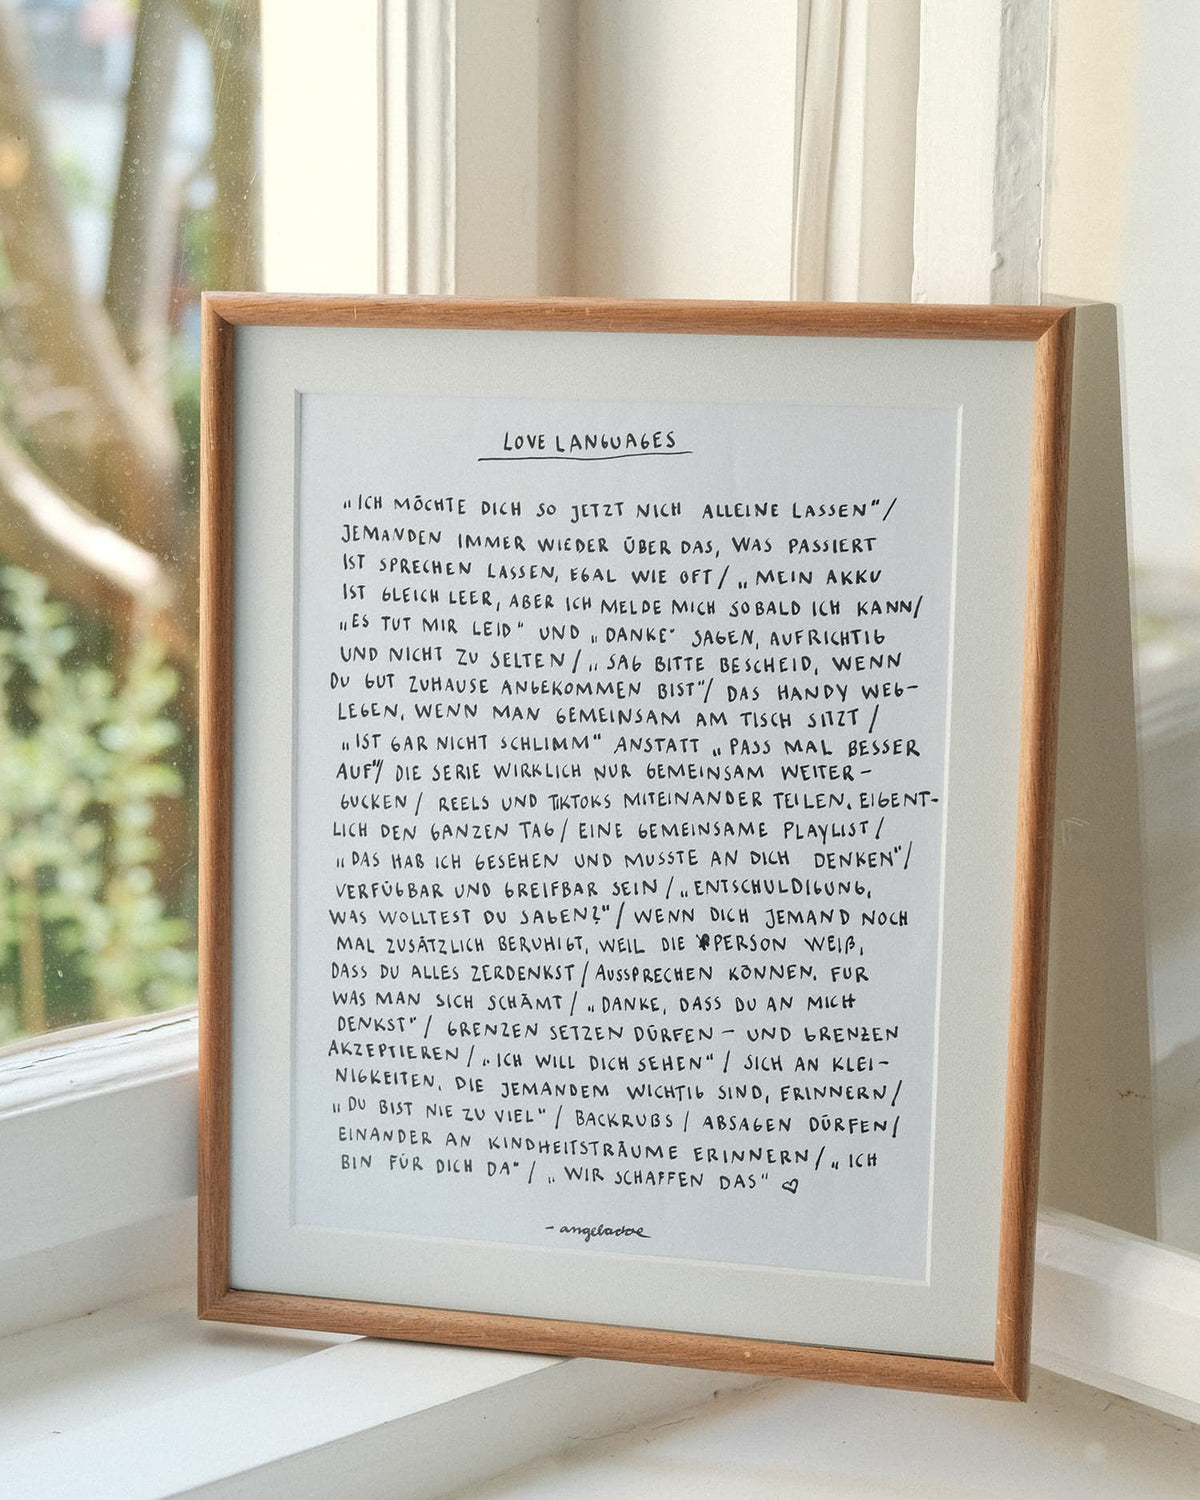 LOVE LANGUAGES
„ICH MÖCHTE DICH SO JETZT NICH ALLEINE LASSEN"/
JEMANDEN IMMER WIEDER ÜBER DAS, WAS PASSIERT
IST SPRECHEN LASSEN, EGAL WIE OFT / „MEIN AKKU
IST GLEICH LEER, ABER ICH MELDE MICH SOBALD ICH KANN/
„ES TUT MIR LEID" UND „DANKE" SAGEN, AUFRICHTIG
UND NICHT ZU SELTEN / „SAG BITTE BESCHEID, WENN
DU GUT ZUHAUSE ANGEKOMMEN BIST"/ DAS HANDY WEG-
LEGEN, WENN MAN GEMEINSAM AM TISCH SITZT /
„IST GAR NICHT SCHLIMM" ANSTATT „PASS MAL BESSER
AUF"/ DIE SERIE WIRKLICH NUR GEMEINSAM WEITER-
GUCKEN / REELS UND TIKTOKS MITEINANDER TEILEN, EIGENT-
LICH DEN GANZEN TAG / EINE GEMEINSAME PLAYLIST /
„DAS HAB ICH GESEHEN UND MUSSTE AN DICH DENKEN"/
VERFÜGBAR UND GREIFBAR SEIN / „ENTSCHULDIGUNG,
WAS WOLLTEST DU SAGEN?" / WENN DICH JEMAND NOCH
MAL ZUSÄTZLICH BERUHIGT, WEIL DIE PERSON WEIß,
DASS DU ALLES ZERDENKST / AUSSPRECHEN KÖNNEN, FÜR
WAS MAN SICH SCHÄMT / „DANKE, DASS DU AN MICH
DENKST" / GRENZEN SETZEN DÜRFEN - UND GRENZEN
AKZEPTIEREN / „ICH WILL DICH SEHEN" / SICH AN KLEI-
NIGKEITEN, DIE JEMANDEM WICHTIG SIND, ERINNERN /
„DU BIST NIE ZU VIEL" / BACKRUBS / ABSAGEN DÜRFEN /
EINANDER AN KINDHEITSTRÄUME ERINNERN / „ICH
BIN FÜR DICH DA" / „WIR SCHAFFEN DAS" ♡
- angeladoe